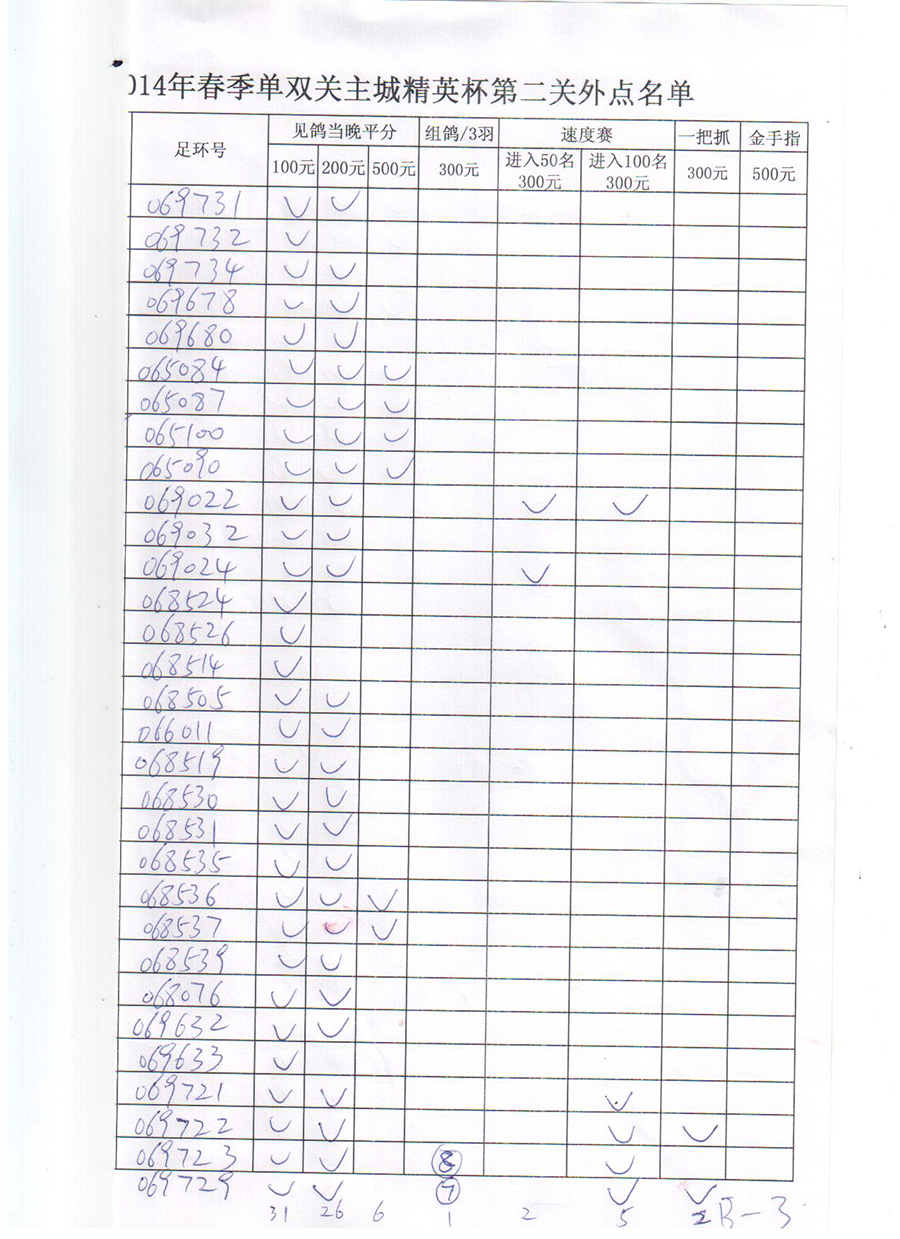 014年春季单双关主城精英杯第二关外点名单
足环号 见鸽当晚平分 组鸽/3羽 速度赛 一把抓 金手指
100元 200元 500元 300元 进入50名 300元 进入100名 300元 300元 500元
069731 ✓ ✓
069732 ✓
069734 ✓ ✓
069678 ✓ ✓
069680 ✓ ✓
065084 ✓ ✓ ✓
065087 ✓ ✓ ✓
065100 ✓ ✓ ✓
065090 ✓ ✓ ✓
069022 ✓ ✓ ✓ ✓
069032 ✓ ✓
069024 ✓ ✓ ✓
068524 ✓
068526 ✓
068514 ✓
068505 ✓ ✓
066011 ✓ ✓
068519 ✓ ✓
068530 ✓ ✓
068531 ✓ ✓
068535 ✓ ✓
068536 ✓ ✓ ✓
068537 ✓ ✓ ✓
068539 ✓ ✓
068076 ✓ ✓
069632 ✓ ✓
069633 ✓
069721 ✓ ✓ ✓
069722 ✓ ✓ ✓ ✓
069723 ✓ ✓ ⑧ ✓
069729 ✓ ✓ ⑦ ✓ ✓
31 26 6 1 2 5 2 B-3